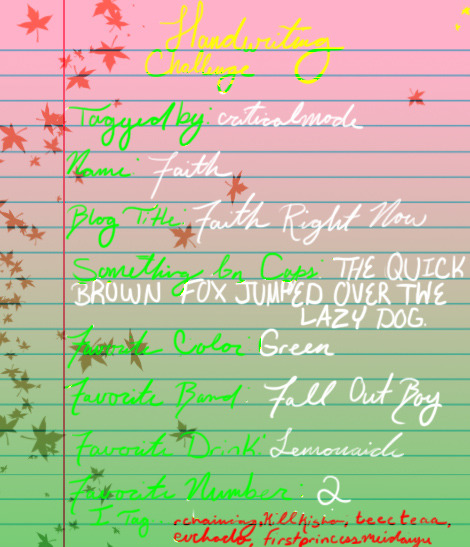 Handwriting
Challenge
Tagged by: criticalmode
Name: Faith
Blog Title: Faith Right Now
Something In Caps: THE QUICK
BROWN FOX JUMPED OVER THE
LAZY DOG.
Favorite Color: Green
Favorite Band: Fall Out Boy
Favorite Drink: Lemonaide
Favorite Number: 2
I Tag: